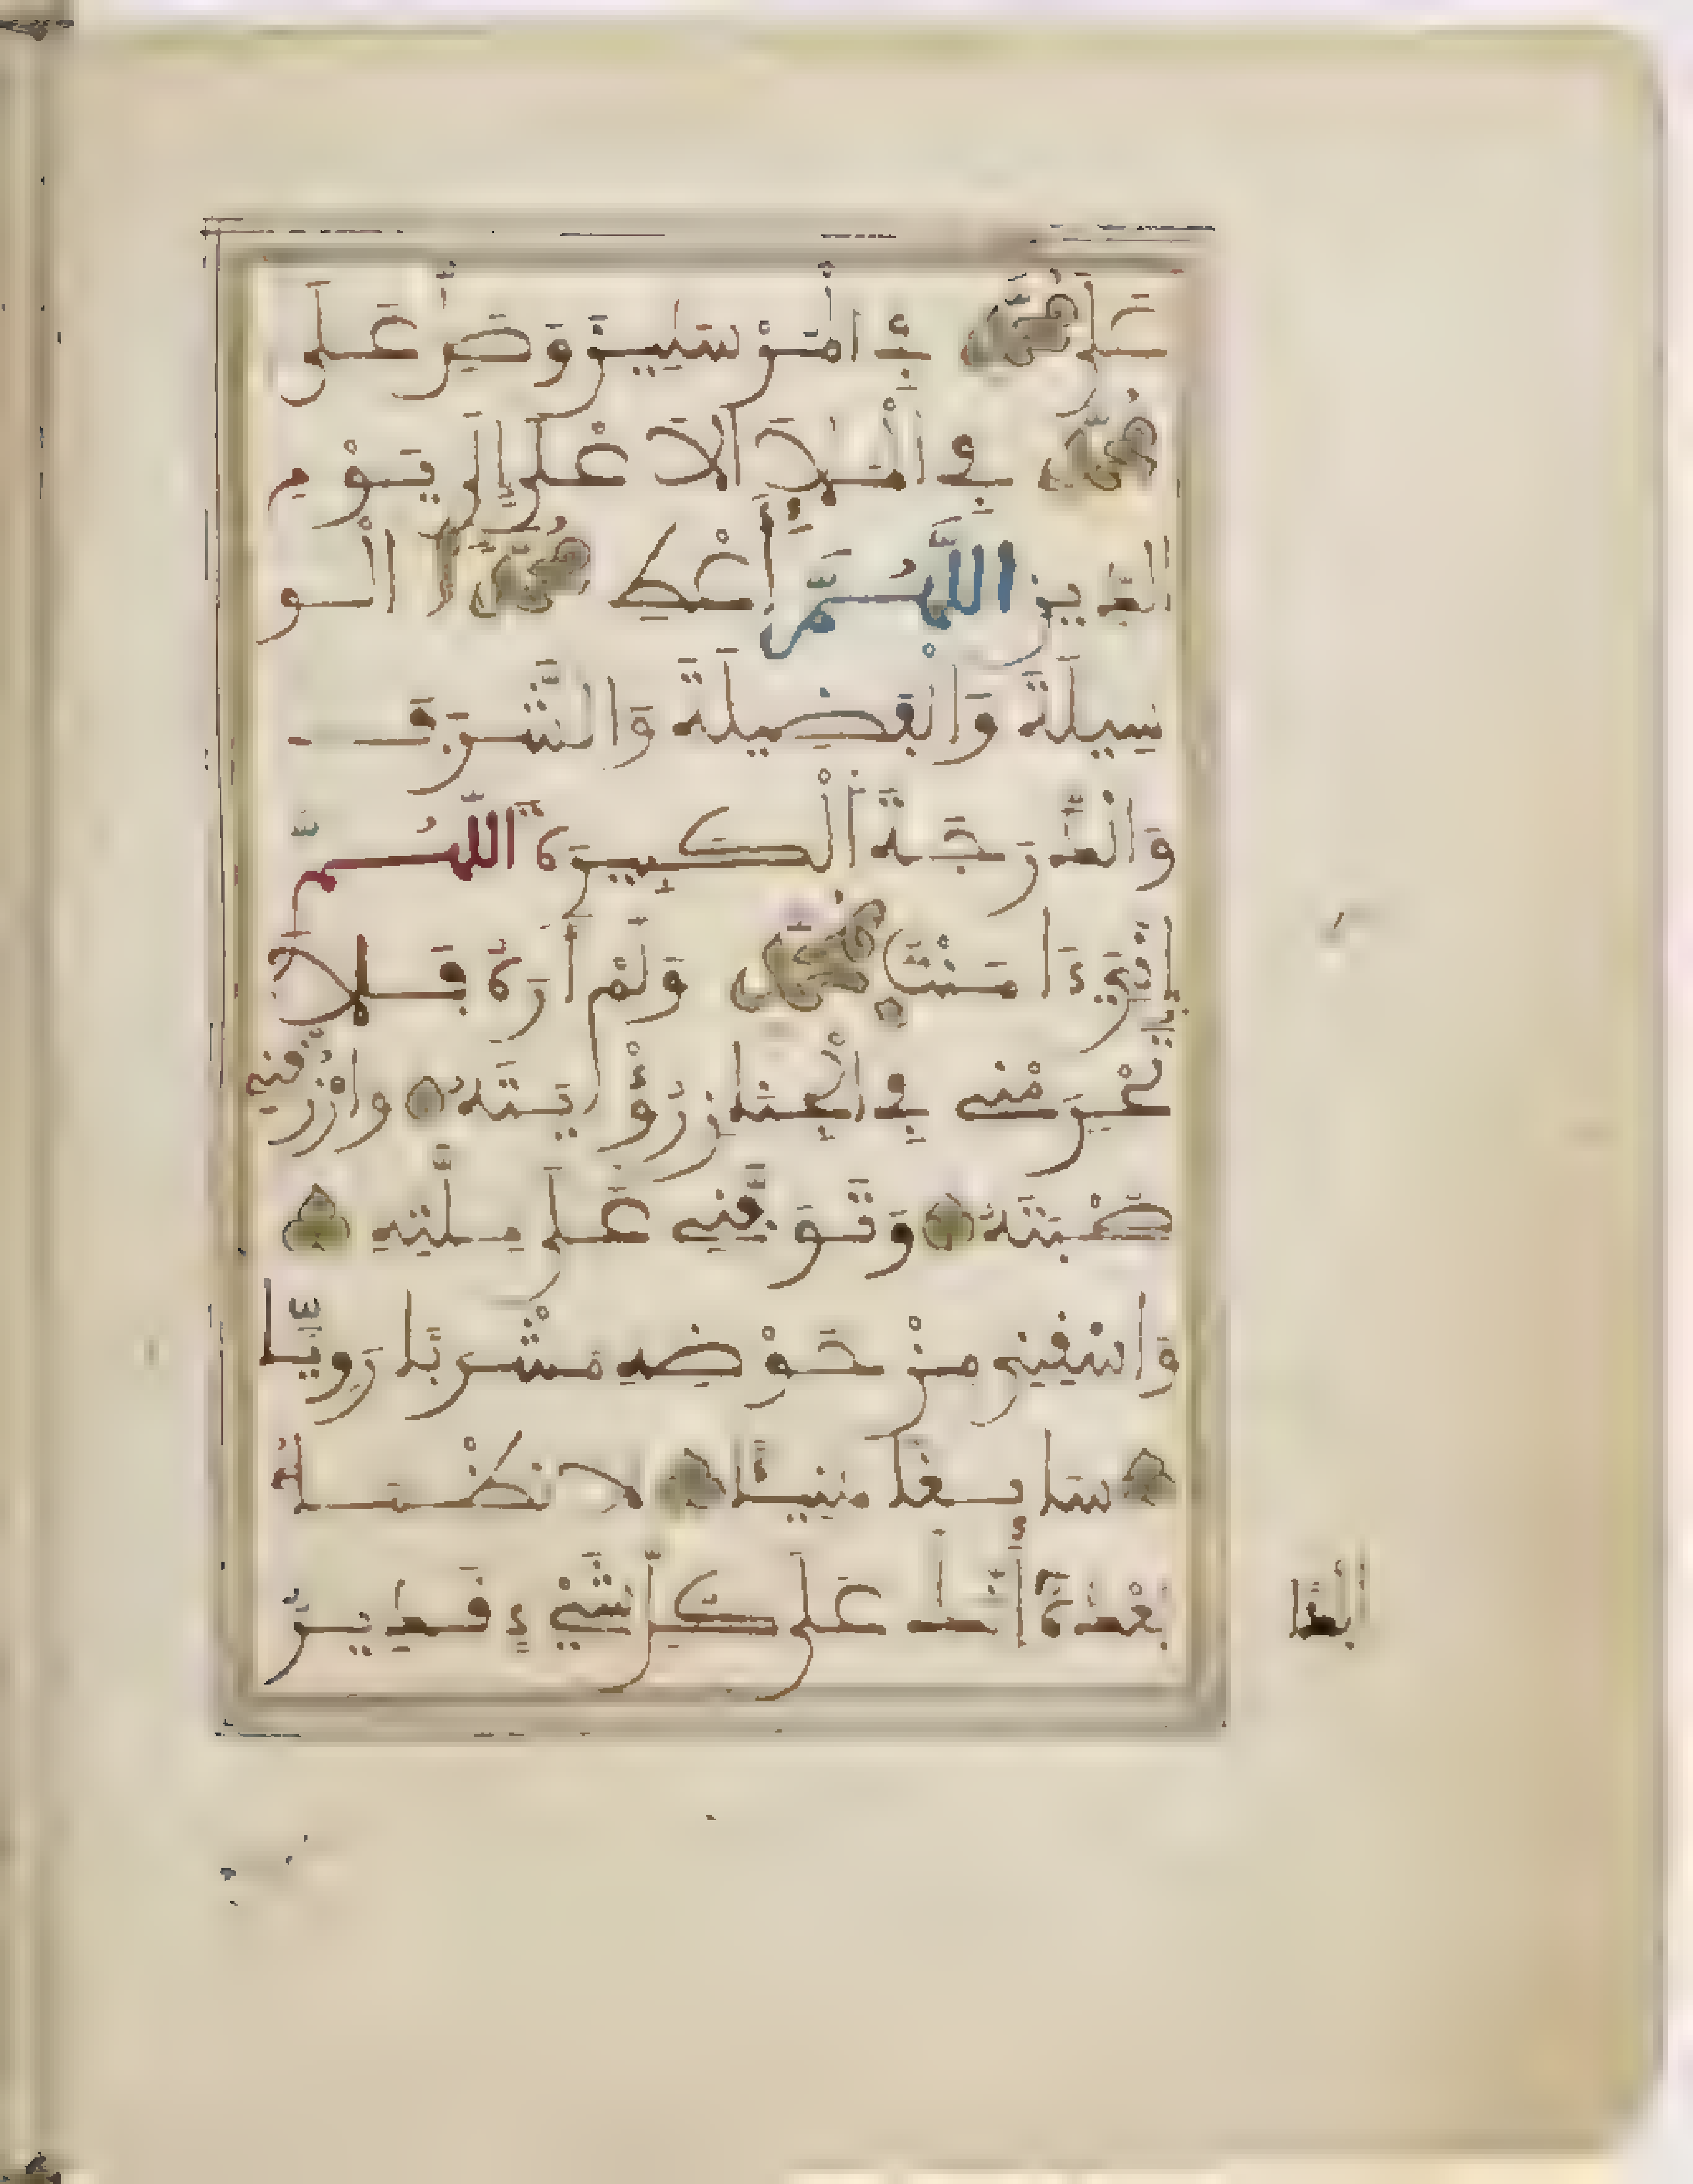 عَلَى مُحَمَّدٍ فِي الْمُرْسَلِينَ وَصَلِّ عَلَى
مُحَمَّدٍ فِي الْمَلَإِ الْأَعْلَى إِلَى يَوْمِ
الدِّينِ اللَّهُمَّ أَعْطِ مُحَمَّدًا الْوَ
سِيلَةَ وَالْفَضِيلَةَ وَالشَّرَفَ
وَالدَّرَجَةَ الْكَبِيرَةَ اللَّهُمَّ
إِنِّي ءَامَنْتُ بِمُحَمَّدٍ وَلَمْ أَرَهُ فَلَا
تَحْرِمْنِي فِي الْجِنَانِ رُؤْيَتَهُ وَارْزُقْنِي
صُحْبَتَهُ وَتَوَفَّنِي عَلَى مِلَّتِهِ
وَاسْقِنِي مِنْ حَوْضِهِ مَشْرَبًا رَوِيًّا
سَائِغًا هَنِيئًا لَا نَظْمَأُ
بَعْدَهُ أَبَدًا إِنَّكَ عَلَى كُلِّ شَيْءٍ قَدِيرٌ